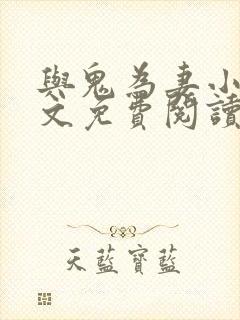 與鬼為妻小
文免費閱讀
天藍寶藍